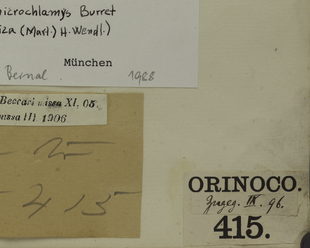 microchlamys Burret
(Mart.) H. Wendl.)
München
Bernal 1988
Beccari vissa XI. 05.
III 1906
415
ORINOCO.
IX. 96.
415.